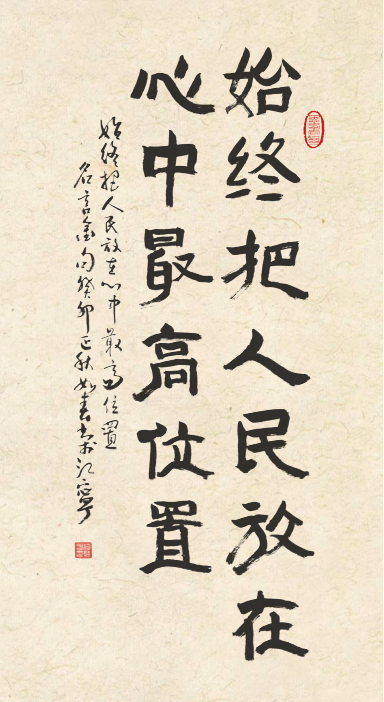 始终把人民放在
心中最高位置
始终把人民放在心中最高位置
名言金句癸卯正秋如春书于江宁